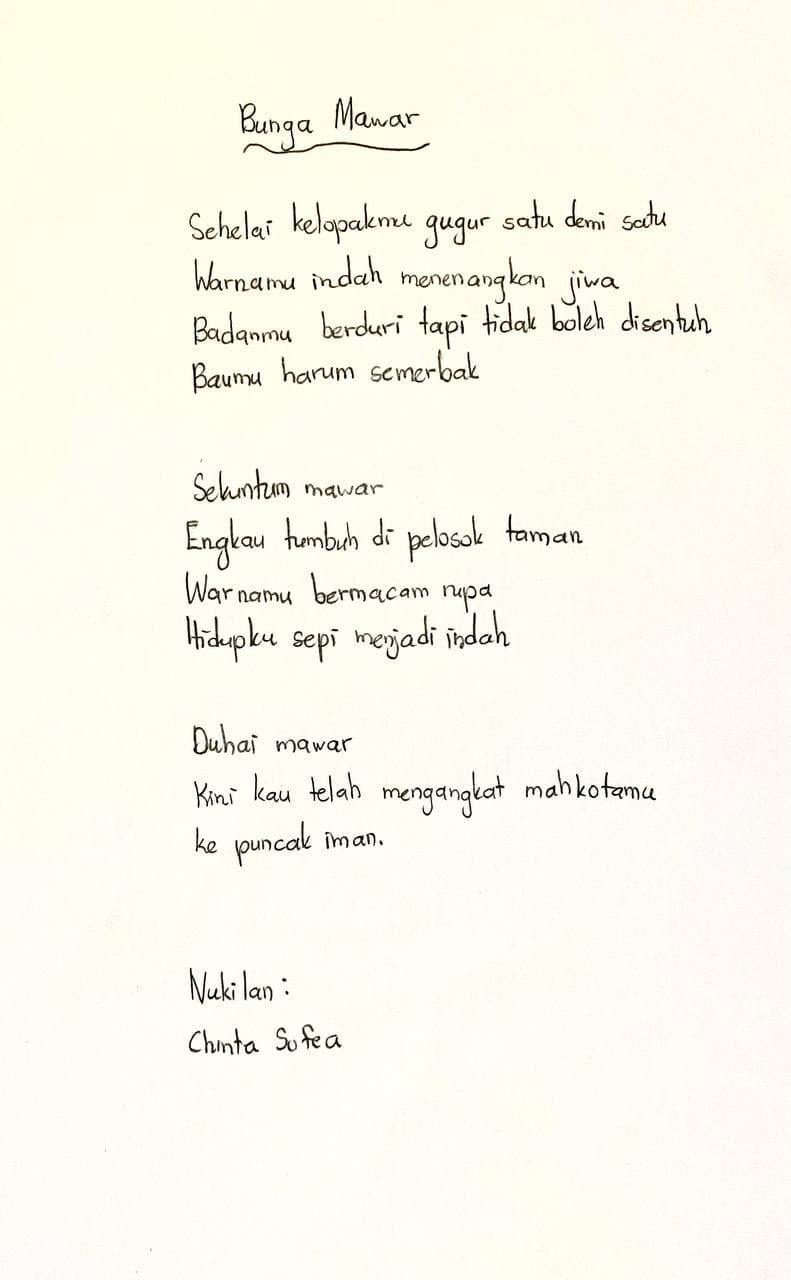 Bunga Mawar
Sehelai kelopakmu gugur satu demi satu
Warnamu indah menenangkan jiwa
Badanmu berduri tapi tidak boleh disentuh
Baumu harum semerbak
Sekuntum mawar
Engkau tumbuh di pelosok taman
Warnamu bermacam rupa
Hidupku sepi menjadi indah
Duhai mawar
Kini kau telah mengangkat mahkotamu
ke puncak iman.
Nukilan :
Chinta Sofea